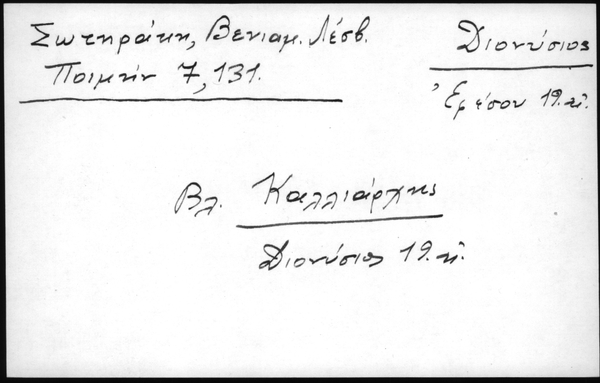 Σωτηράκη, Βενιαμ. Λέσβ.
Ποιμήν 7, 131.
Διονύσιος
Ἐφέσου 19. αἰ.
Βλ. Καλλιάρχης
Διονύσιος 19. αἰ.